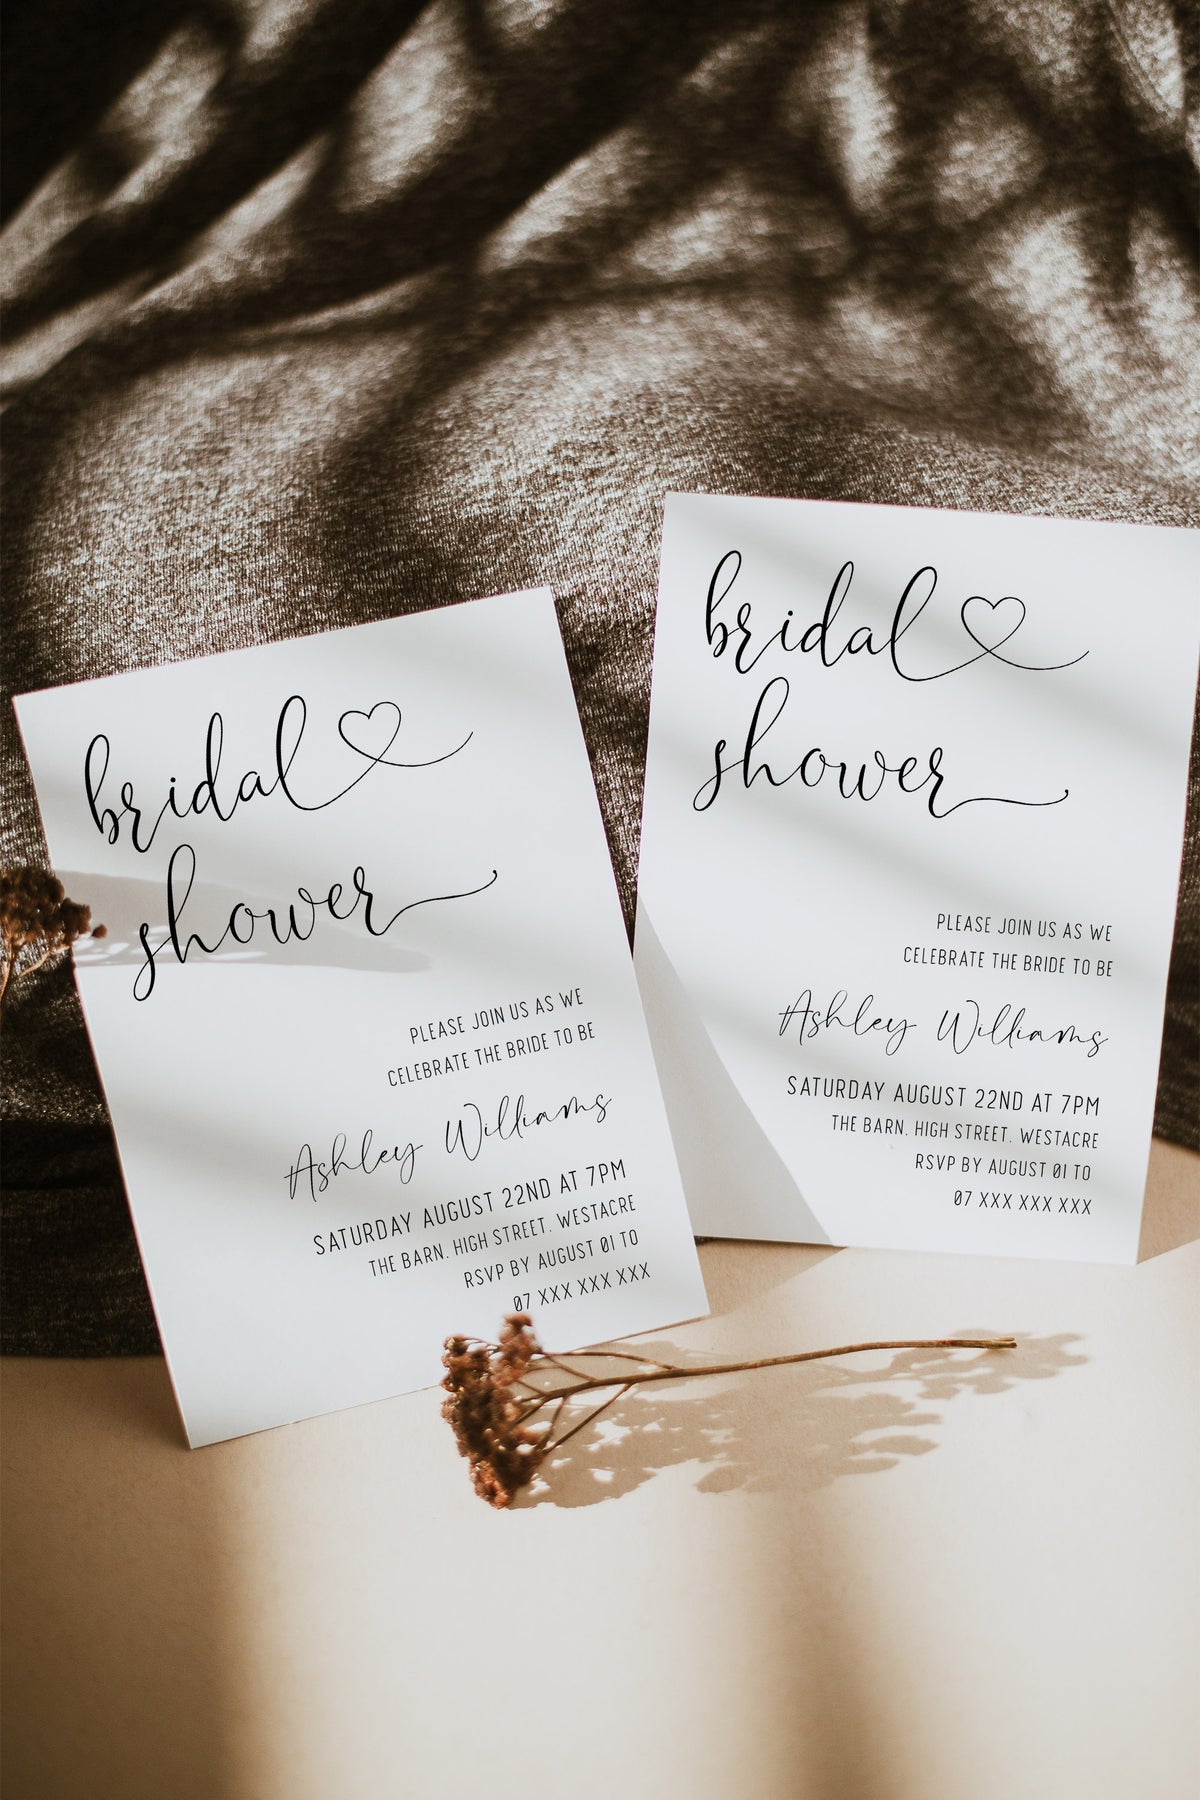 bridal
shower
PLEASE JOIN US AS WE
CELEBRATE THE BRIDE TO BE
Ashley Williams
SATURDAY AUGUST 22ND AT 7PM
THE BARN. HIGH STREET. WESTACRE
RSVP BY AUGUST 01 TO
07 XXX XXX XXX
bridal
shower
PLEASE JOIN US AS WE
CELEBRATE THE BRIDE TO BE
Ashley Williams
SATURDAY AUGUST 22ND AT 7PM
THE BARN. HIGH STREET. WESTACRE
RSVP BY AUGUST 01 TO
07 XXX XXX XXX